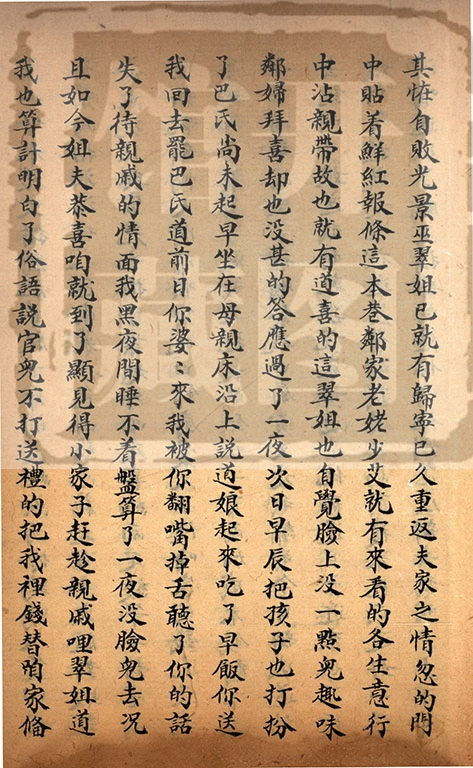 其怍自敗光景巫翠姐已就有歸寧已久重返夫家之情忽的門
中貼着鮮紅報條這本巷鄰家老姥少艾就有來看的各生意行
中沾親帶故也就有道喜的這翠姐也自覺臉上沒一點兒趣味
鄰婦拜喜却也沒甚的答應過了一夜次日早辰把孩子也打扮
了巴氏尚未起早坐在母親床沿上說道娘起來吃了早飯你送
我回去罷巴氏道前日你婆〻來我被你翻嘴掉舌聽了你的話
失了待親戚的情面我黑夜間睡不着盤算了一夜沒臉兒去况
且如今姐夫恭喜咱就到了顯見得小家子赶趁親戚哩翠姐道
我也算計明白了俗語說官兒不打送禮的把我裡錢替咱家俻
开图
馆藏